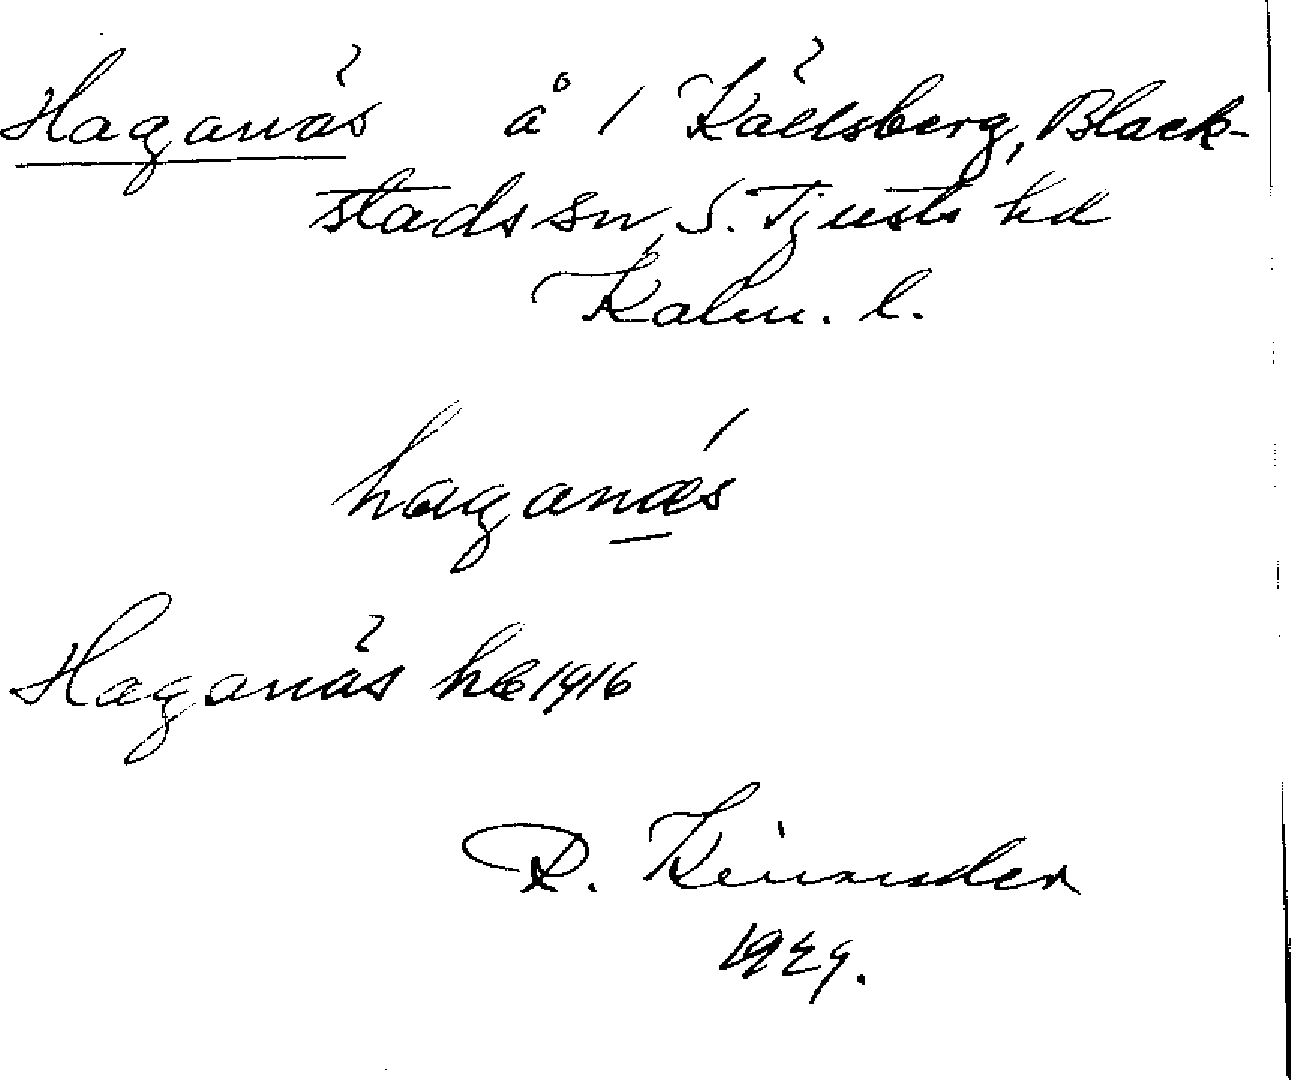 Haganäs å 1 Källsberg, Black-
stads sn, S. Tjusts hd
Kalm. l.
haganäs
Haganäs hb 1916
R. Kinnander
1929.